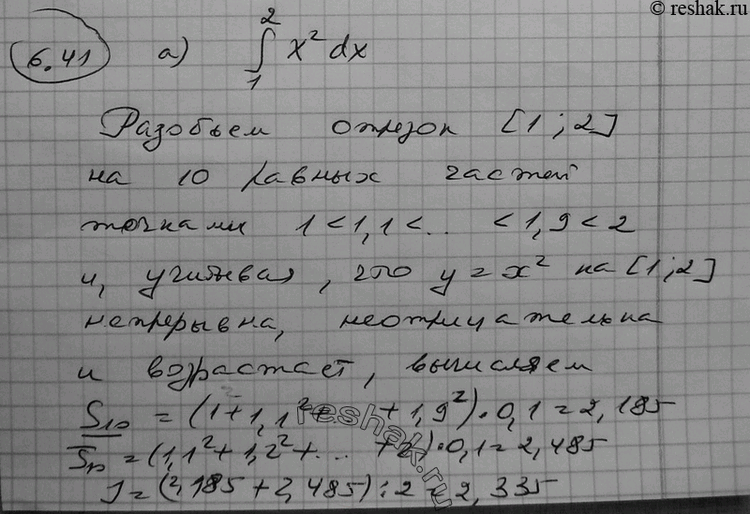 © reshak.ru
6.41 а) ∫₁² x² dx
Разобьем отрезок [1; 2]
на 10 равных частей
точками 1 < 1,1 < .. < 1,9 < 2
и, учитывая, что y = x² на [1; 2]
непрерывна, неотрицательна
и возрастает, вычисляем
S₁₀ = (1 + 1,1² + + 1,9²) · 0,1 = 2,185
S₁₀ = (1,1² + 1,2² + ... + 2²) · 0,1 = 2,485
J = (2,185 + 2,485) : 2 = 2,335
reshak.ru